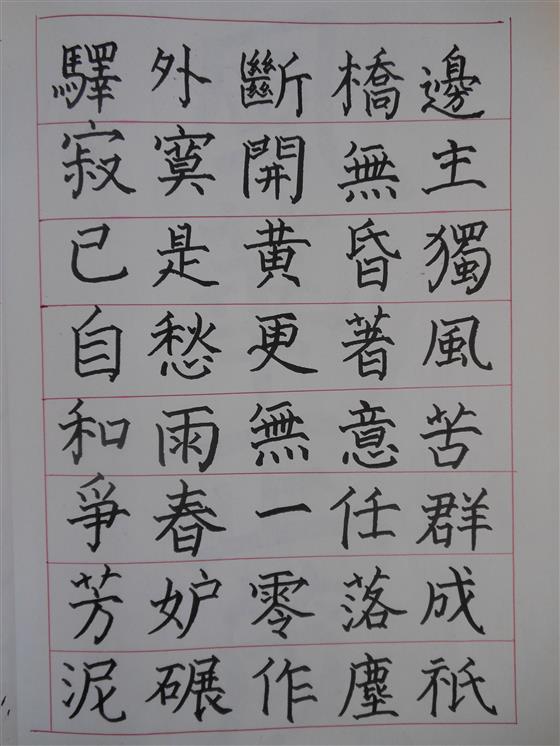 驛外斷橋邊
寂寞開無主
已是黃昏獨
自愁更著風
和雨無意苦
爭春一任群
芳妒零落成
泥碾作塵祇